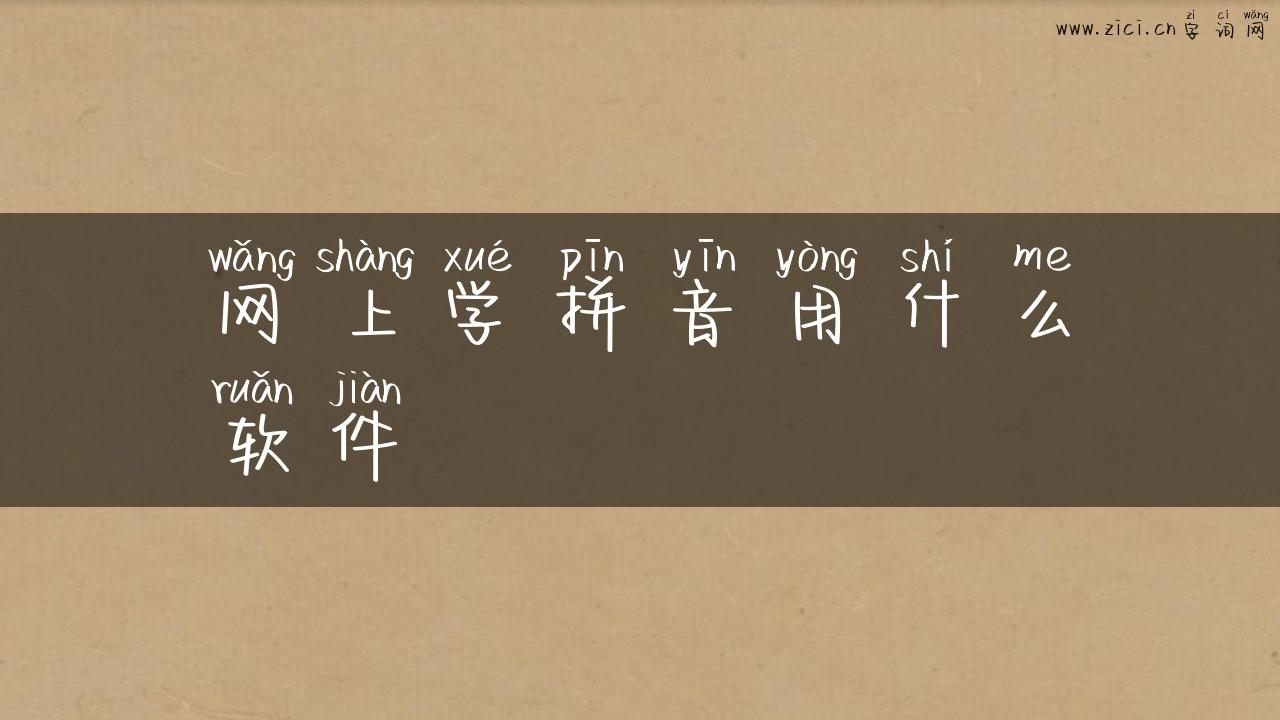 zì cí wǎng
www.zici.cn 字 词 网
wǎng shàng xué pīn yīn yòng shí me
网 上 学 拼 音 用 什 么
ruǎn jiàn
软 件